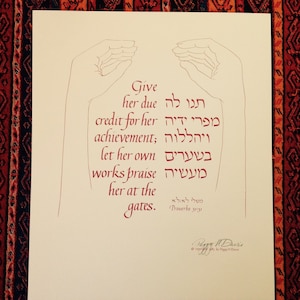 Give
her due
credit for her
achievement;
let her own
works praise
her at the
gates.
תנו לה
מפרי ידיה
ויהללוה
בשערים
מעשיה
משלי ל״א:ל״א
Proverbs 31:31